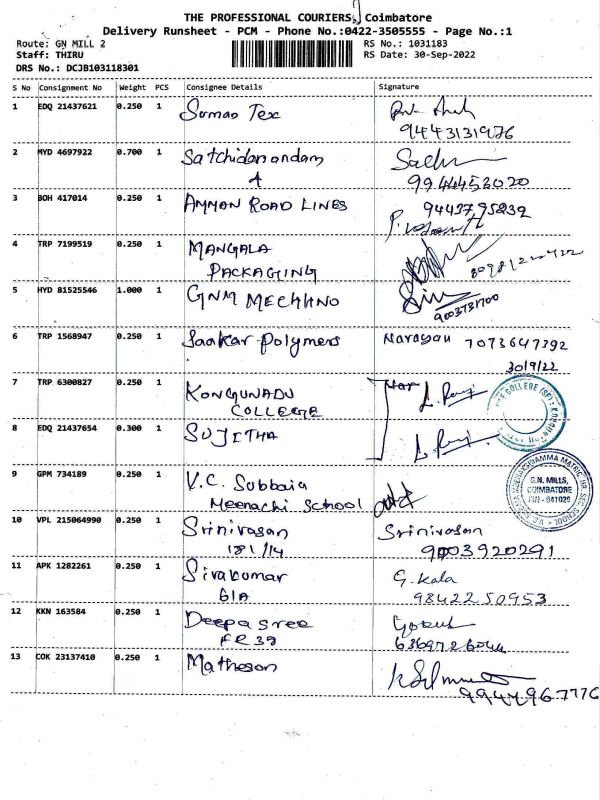 THE PROFESSIONAL COURIERS, Coimbatore
Delivery Runsheet - PCM - Phone No.:0422-3505555 - Page No.:1
Route: GN MILL 2 RS No.: 1031183
Staff: THIRU RS Date: 30-Sep-2022
DRS No.: DCJB103118301
S No Consignment No Weight PCS Consignee Details Signature
1 EDQ 21437621 0.250 1 Suman Tex
9443131976
2 MYD 4697922 0.700 1 Satchidanandam
A 9944453020
3 BOH 417014 0.250 1 AMMAN ROAD LINES 9443795832
4 TRP 7199519 0.250 1 MANGALA
PACKAGING
5 HYD 81525546 1.000 1 GNM MECHHNO
9003731700
6 TRP 1568947 0.250 1 Saakar polymers Narayan 7073647392
30/9/22
7 TRP 6300827 0.250 1 KONGUNADU
COLLEGE
8 EDQ 21437654 0.300 1 SUJITHA
9 GPM 734189 0.250 1 V.C. Subbaia
Meenachi School
G.N. MILLS,
COIMBATORE
PIN - 641029
10 VPL 215064990 0.250 1 Srinivasan Srinivasan
181/14 9003920291
11 APK 1282261 0.250 1 Sivakumar G. Kala
61A 98422 50953
12 KKN 163584 0.250 1 Deepasree Gokul
FR 39
13 COK 23137410 0.250 1 Matheson
9944967776